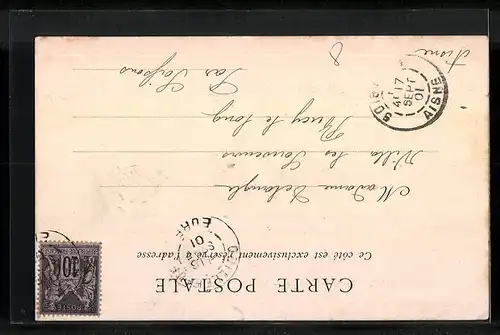 CARTE POSTALE
Ce côté est exclusivement réservé à l'adresse
Madame Delangle
Villa les Souvenirs
Bucy le Long
Par Soissons
Aisne
8
SOISS
4E 17
SEPT
01
AISNE
EURE
01
10
POSTE